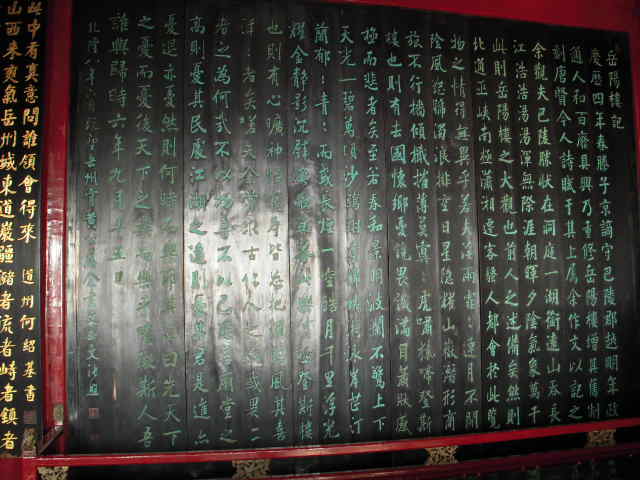 岳陽樓記
慶歷四年春滕子京謫守巴陵郡越明年政
通人和百廢具興乃重修岳陽樓增其舊制
刻唐賢今人詩賦于其上屬余作文以記之
余觀夫巴陵勝狀在洞庭一湖銜遠山吞長
江浩浩湯湯渾無際涯朝暉夕陰氣象萬千
此則岳陽樓之大觀也前人之述備矣然則
北通巫峽南極瀟湘遷客騷人都會於此覽
物之情得無異乎若夫淫雨霏〻連月不開
陰風怒號濁浪排空日星隱耀山嶽潛形商
旅不行檣傾楫摧薄暮冥〻虎嘯猿啼登斯
樓也則有去國懷鄉憂讒畏譏滿目蕭然感
極而悲者矣至若春和景明波瀾不驚上下
天光一碧萬頃沙鷗翔集錦鱗游泳岸芷汀
蘭郁〻青〻而或長煙一空皓月千里浮光
耀金靜影沉璧漁歌互答此樂何極登斯樓
也則有心曠神怡寵辱皆忘把酒臨風其喜
洋〻者矣嗟夫余嘗求古仁人之心或異二
者之為何哉不以物喜不以己悲居廟堂之
高則憂其民處江湖之遠則憂其君是進亦
憂退亦憂然則何時而樂耶其必曰先天下
之憂而憂後天下之樂而樂乎噫微斯人吾
誰與歸時六年九月十五日
乾隆八年 岳州守黃
此中有真意問誰領會得來 道州何紹基書
山西來爽氣岳州城東道巖疆瀦者流者峙者鎮者